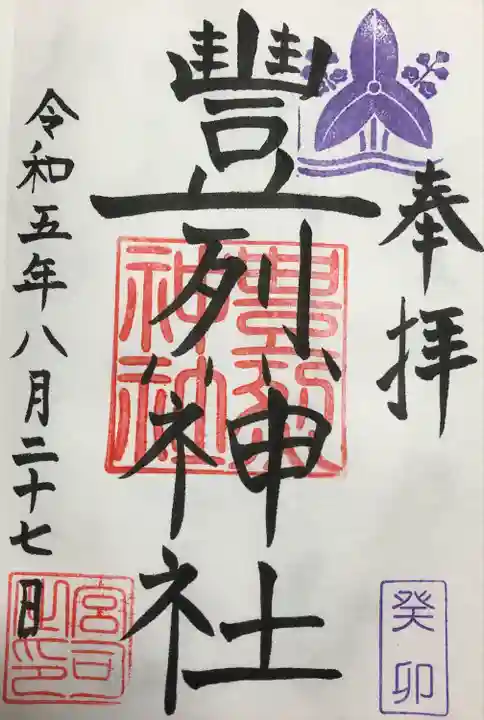 奉拝
癸卯
豐烈神社
豊烈神社
令和五年八月二十七日
宮司之印